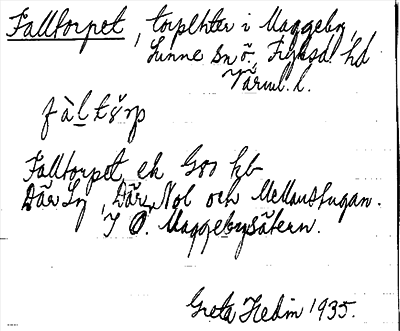 Falltorpet, torplhter i Maggeby,
Sunne sn ö., Fryksd. hd
Värml. l.
fàltǒrp
Falltorpet ek G80 kb
Där Sy, Där Nol och Mellanstugan.
I O. Maggebysätern.
Greta Hedin 1935.